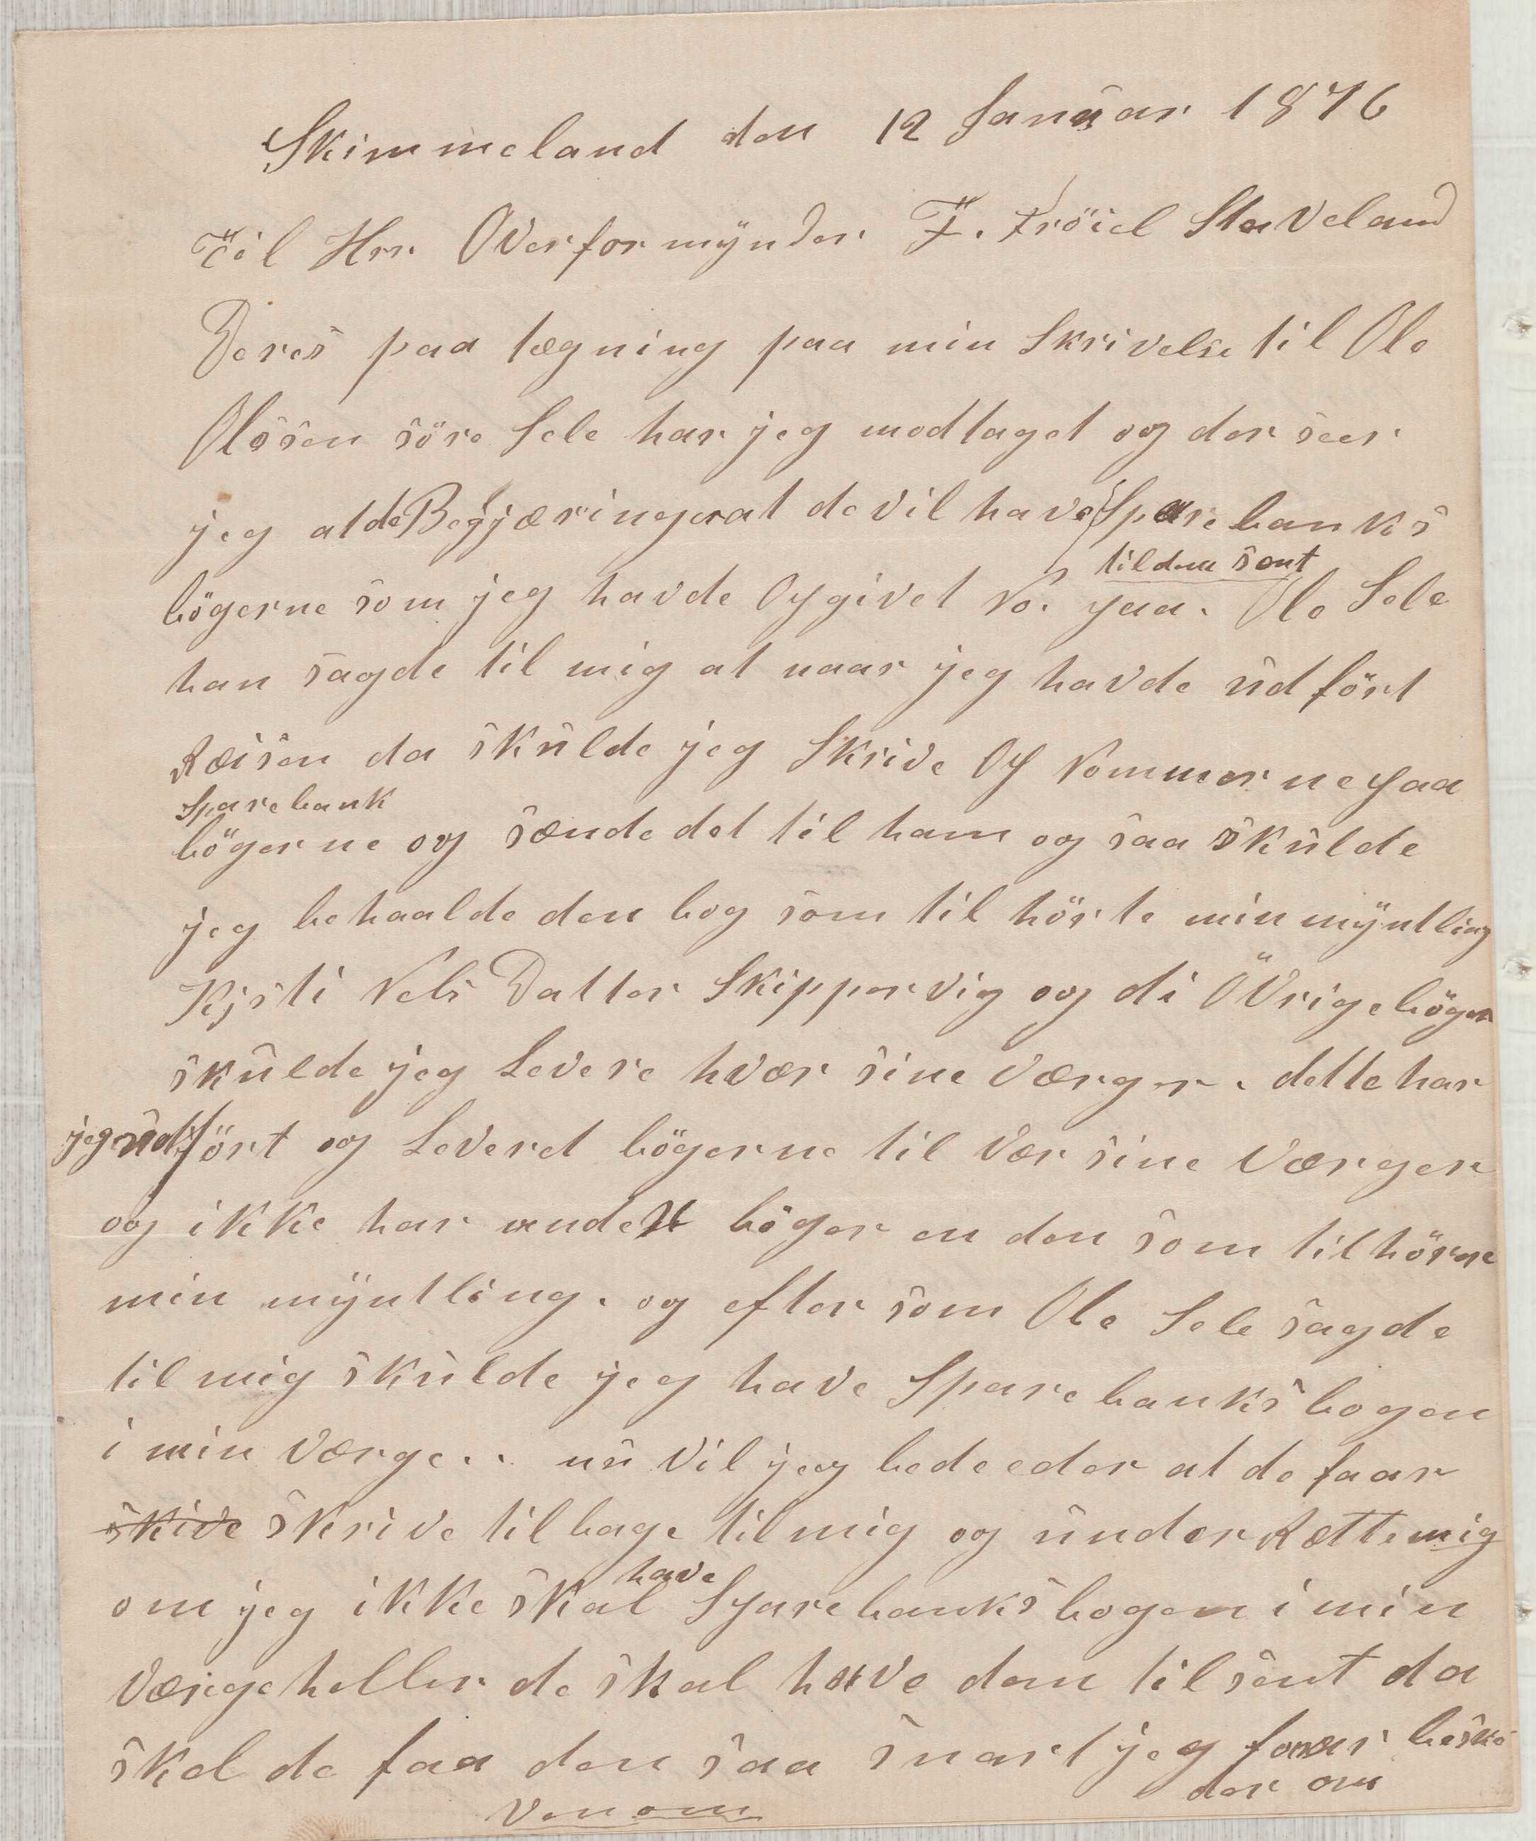 Skimmeland den 12 Januar 1876
Til Hrr Overformÿnder F. Fröiel Staveland
Deres paa tægning paa min Skrivelse til Ole
Olssen söre Sele har jeg modtaget og der seer
jeg at de Begjæringer at de vil have Sparebanks
tildem sent
bögerne som jeg havde Opgivet No. paa. Ole Sele
han sagde til mig at naar jeg havde udfört
Ræisen da skulde jeg Skrive Op Nommerne paa
Sparebank
bögerne og sænde det til ham og saa skulde
jeg behaalde den bog som til hörte min mÿntling
Kjsti Nels Datter Skippervig og di Övrige böger
skulde jeg Levere hvær sine Værger. dette har
jeg udfört og Leveret bögerne til Vær sine Værger
og ikke har andet böger en den som tilhörne
min mÿntling. og efter som Ole Sele sagde
til mig skulde jeg have Sparebanksbogen
i min Værge.. nu Vil jeg bede eder at de faar
skive skrive tilbage til mig og underRætte mig
have
om jeg ikke skal Sparebanksbogen i min
Værige heller de skal have dem tilsent da
skal de faa den saa snart jeg faaar beske
der om
Venom